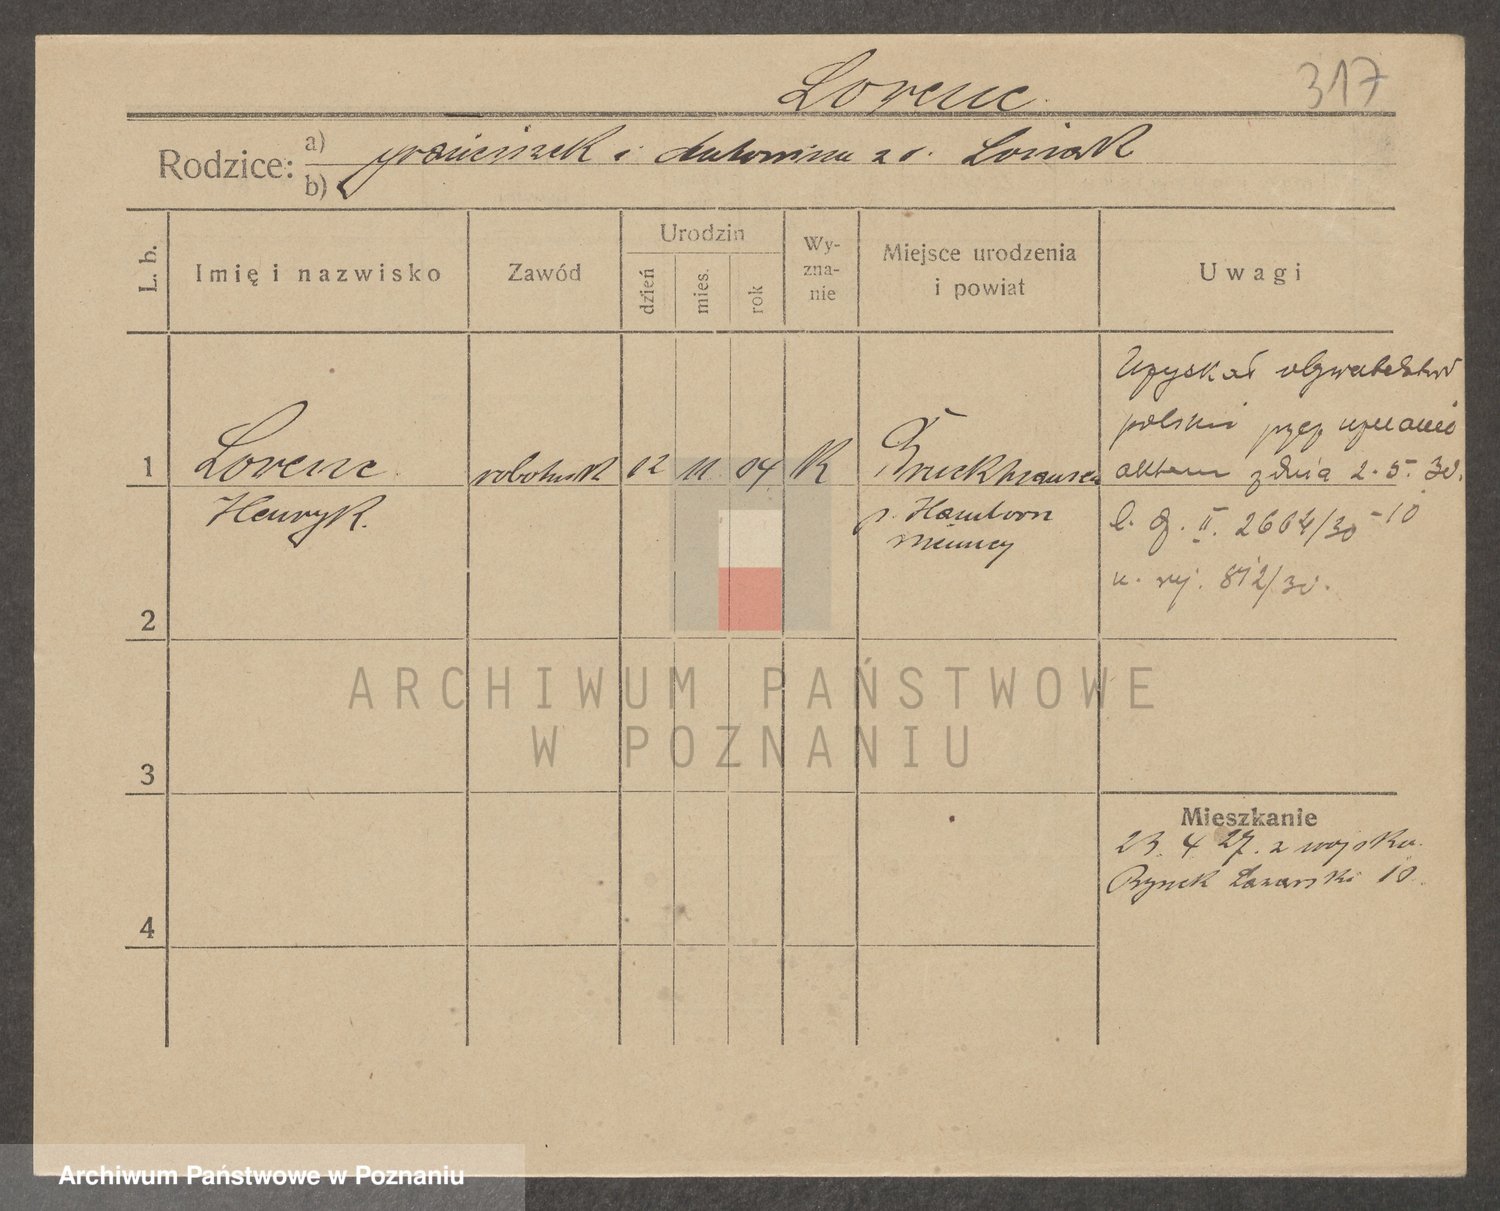 Lorenc
317
Rodzice: a) Franciszek i Antonina z d. Losiak
b)
L. b.
Imię i nazwisko
Zawód
Urodzin
dzień
mies.
rok
Wy-
zna-
nie
Miejsce urodzenia
i powiat
Uwagi
1
Lorenc
Henryk.
robotnik
12
11.
04.
K
Bruckhausen
p. Hamborn
Niemcy
Uzyskał obywatelstwo
polskie przez uznanie
aktem z dnia 2. 5. 30.
l. dz. II. 2604/30 - 10
n. rej. 812/30.
2
3
4
Mieszkanie
23. 4 27. z wojska.
Rynek Łazarski 10.
ARCHIWUM PAŃSTWOWE
W POZNANIU
Archiwum Państwowe w Poznaniu